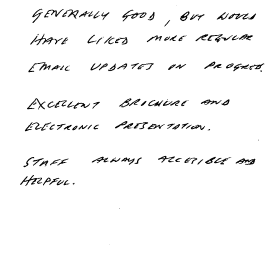 GENERALLY GOOD, BUT WOULD
HAVE LIKED MORE REGULAR
EMAIL UPDATES ON PROGRESS.
EXCELLENT BROCHURE AND
ELECTRONIC PRESENTATION.
STAFF ALWAYS ACCESSIBLE AND
HELPFUL.